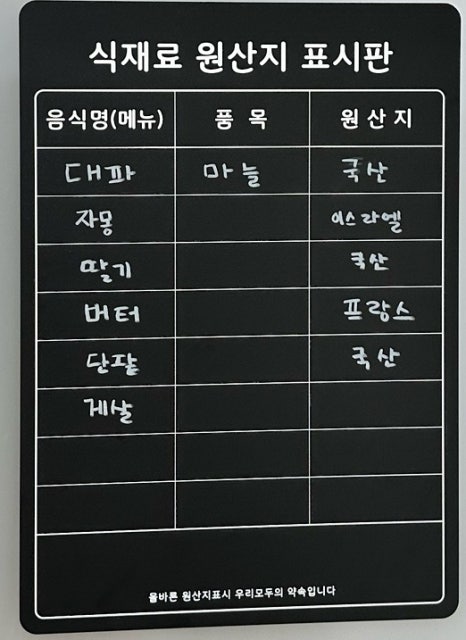 식재료 원산지 표시판
음식명(메뉴) 품 목 원 산 지
대파 마늘 국산
자몽 이스라엘
딸기 국산
버터 프랑스
단팥 국산
게살
올바른 원산지표시 우리모두의 약속입니다